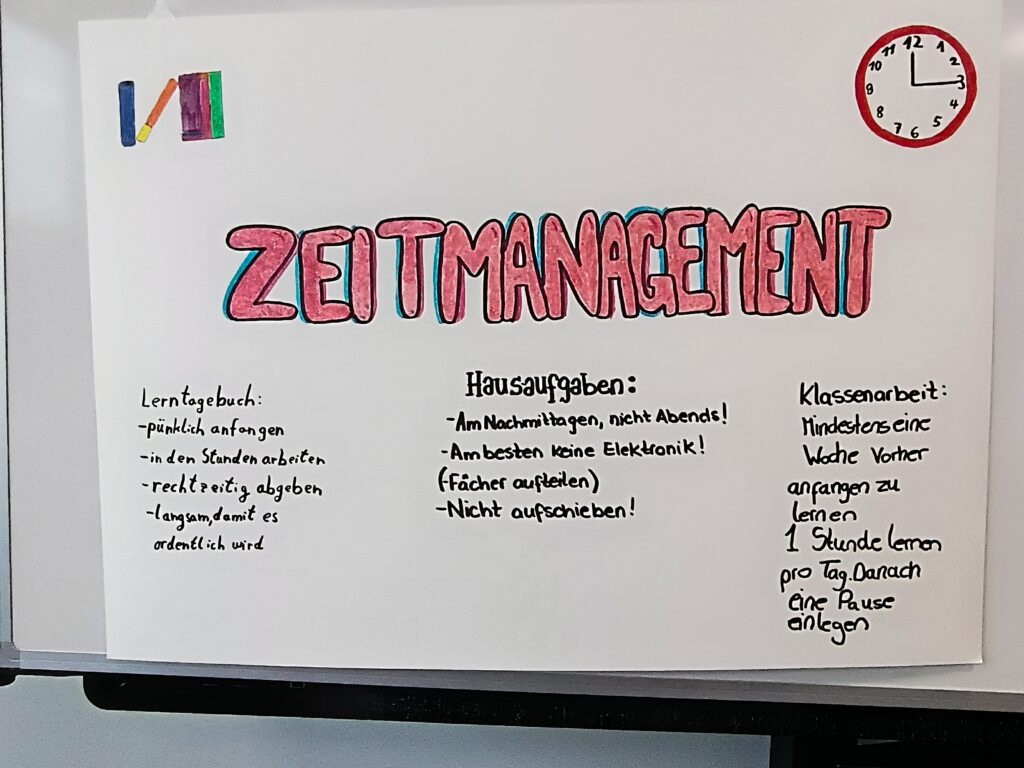 12
1
2
3
4
5
6
7
8
9
10
11
ZEITMANAGEMENT
Lerntagebuch:
-pünklich anfangen
-in den Stunden arbeiten
-rechtzeitig abgeben
-langsam, damit es
ordentlich wird
Hausaufgaben:
-Am Nachmittagen, nicht Abends!
-Am besten keine Elektronik!
(-Fächer aufteilen)
-Nicht aufschieben!
Klassenarbeit:
Mindestens eine
Woche Vorher
anfangen zu
lernen
1 Stunde lernen
pro Tag. Danach
eine Pause
einlegen